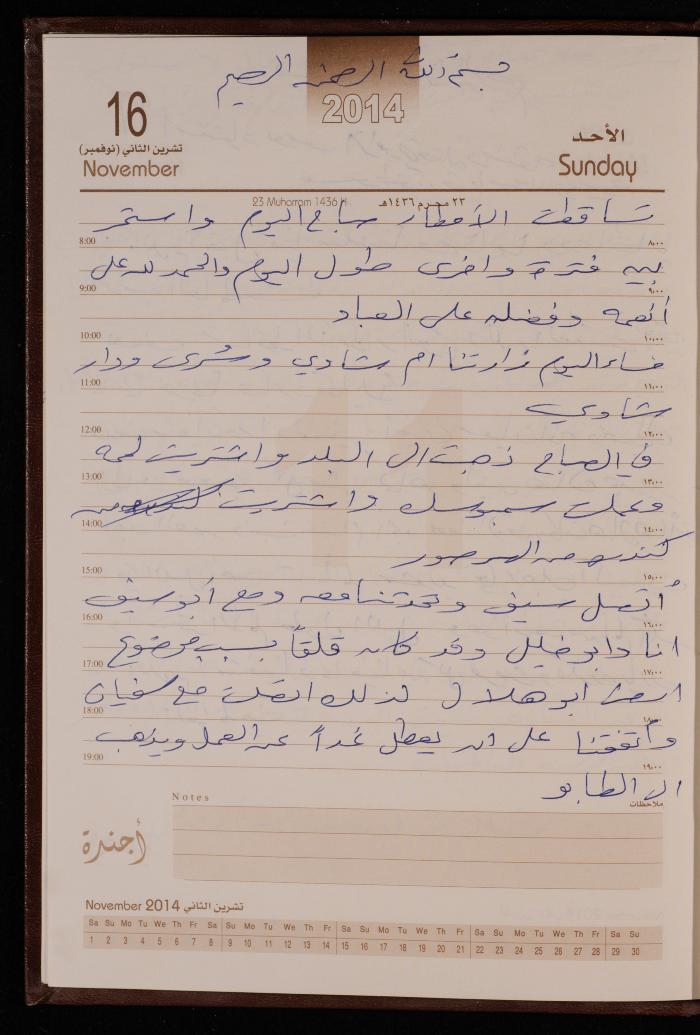 بسم الله الرحمن الرحيم
2014
16
تشرين الثاني (نوفمبر)
November
الأحد
Sunday
23 Muharram 1436 H
٢٣ محرم ١٤٣٦هـ
تساقطت الأمطار صباح اليوم واستمر
8:00 ٨،٠٠
بين فترة واخرى طول اليوم والحمد لله على
9:00 ٩،٠٠
أنعمه وفضله على العباد
10:00 ١٠،٠٠
مساء اليوم زارتنا ام شادي وسرى ودار
11:00 ١١،٠٠
شادي
12:00 ١٢،٠٠
في الصباح ذهبت الى البلد واشتريت لحمه
13:00 ١٣،٠٠
وعملت سمبوسك واشتريت
14:00 ١٤،٠٠
من
15:00 ١٥،٠٠
أتصل سيف وتحدثنا معه ومع أبو سيف
16:00 ١٦،٠٠
انا وابو خليل وقد كان قلقاً بسبب موضوع
17:00 ١٧،٠٠
ابو هلال لذلك اتصلت مع سفيان
18:00 ١٨،٠٠
وأتفقنا على ان يعطل غداً عن العمل ويذهب
19:00 ١٩،٠٠
الى الطابو
Notes
ملاحظات
أجندة
November 2014 تشرين الثاني
Sa Su Mo Tu We Th Fr Sa Su Mo Tu We Th Fr Sa Su Mo Tu We Th Fr Sa Su Mo Tu We Th Fr Sa Su
1 2 3 4 5 6 7 8 9 10 11 12 13 14 15 16 17 18 19 20 21 22 23 24 25 26 27 28 29 30